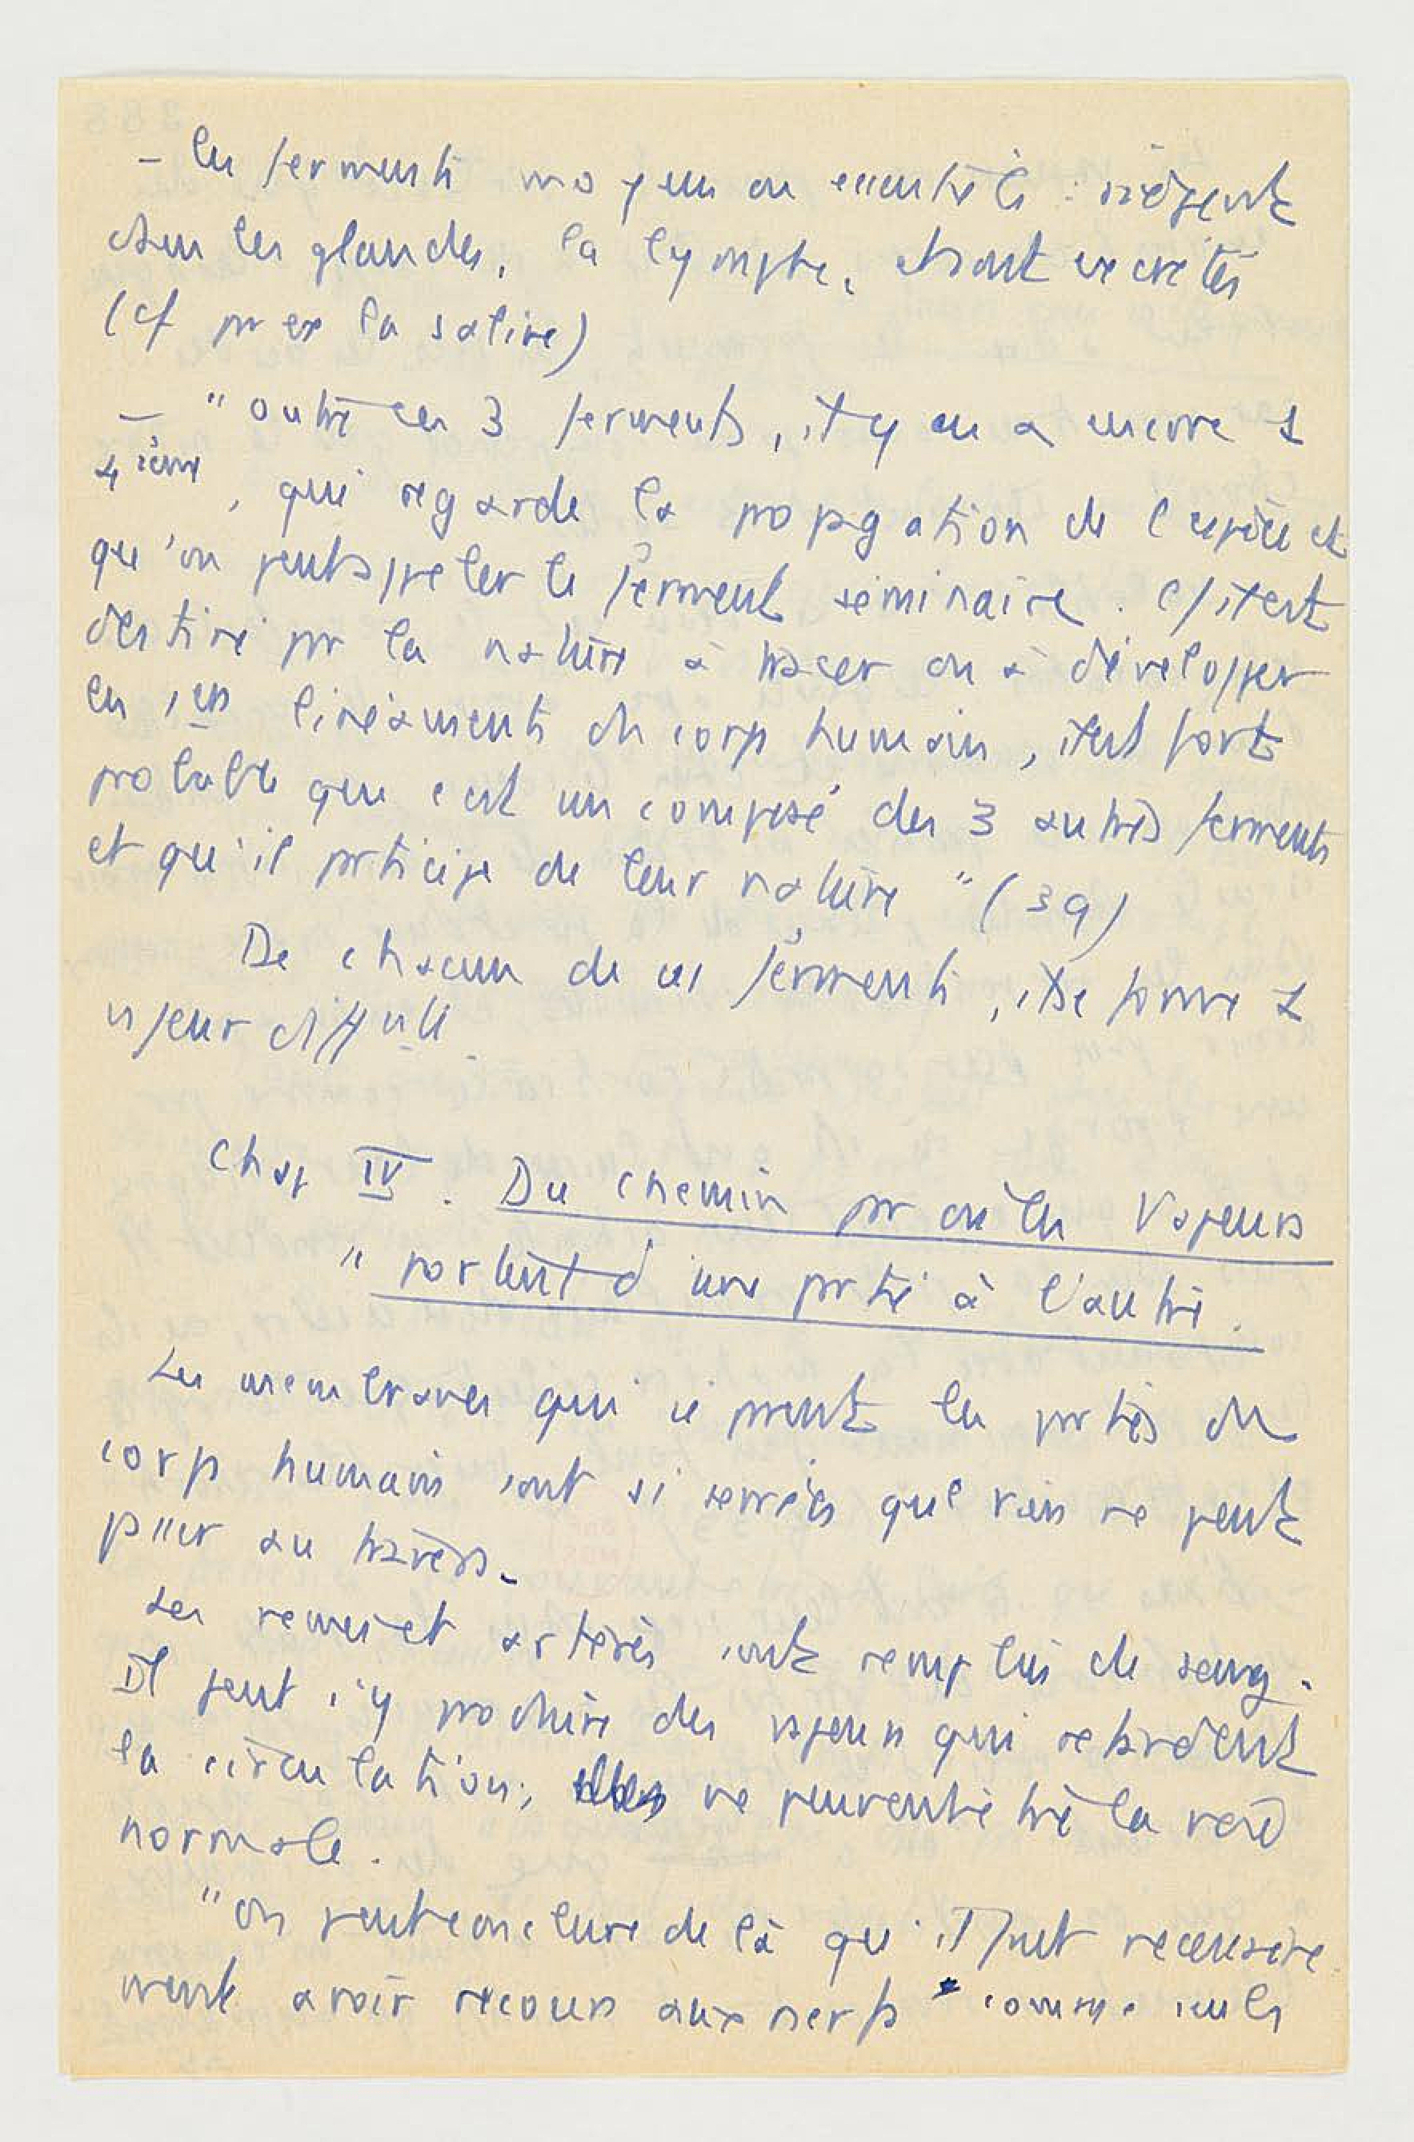 – les ferments moyens ou excentrés : siègent
dans les glandes, la lymphe, et sont excrétés
(cf pr ex la salive)
– " outre ces 3 ferments, il y en a encore 1
4ième, qui regarde la propagation de l'espèce et
qu'on peut appeler le ferment séminaire. C/ il est
destiné pr la nature à tracer ou à développer
les 1ers linéaments du corps humain, il est fort
probable que c'est un composé des 3 autres ferments
et qu'il prticipe de leur nature " (39)
De chacun de ces ferments, il se forme 1
vapeur diffte
Chap IV. Du chemin pr où les Vapeurs
" portent d'une prtie à l'autre.
Les membranes qui sé prent les prties du
corps humain sont si serrées que rien ne peut
passer au travers.
Les veines et artères sont remplies de sang.
Il peut s'y produire des vapeurs qui retardent
la circulation; elles ne peuvent être la voie
normale.
"on peut conclure de là qu'il faut nécessaire
ment avoir recours aux nerfs comme seuls